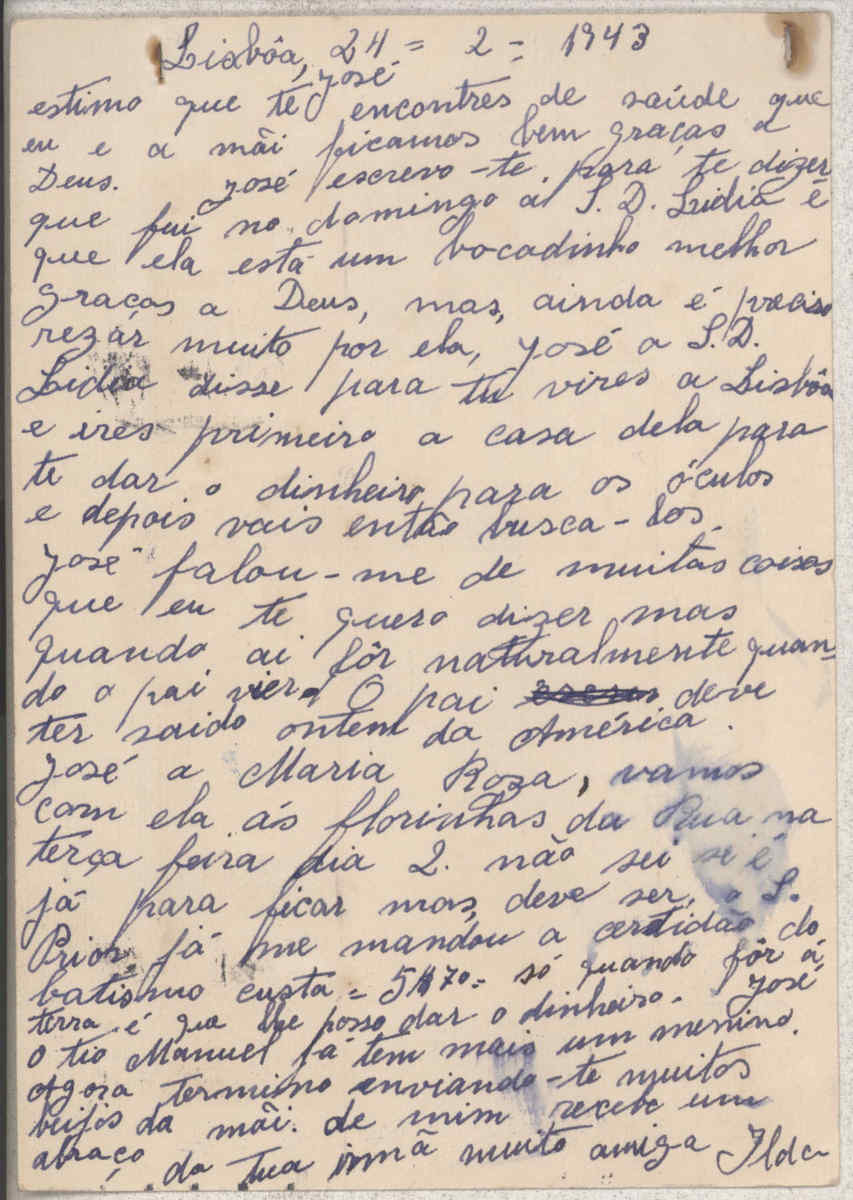 Lisbôa, 24 = 2 = 1943
José
estimo que te encontres de saúde que
eu e a mãi ficamos bem graças a
Deus. José escrevo-te para te dizer
que fui no domingo á S. D. Lidia é
que ela está um bocadinho melhor
graças a Deus, mas, ainda é preciso
rezár muito por ela, José a S. D.
Lidia disse para tu vires a Lisbôa
e ires primeiro a casa dela para
te dar o dinheiro para os óculos
e depois vais então busca-los.
José falou-me de muitas coisas
que eu te quero dizer mas
quando ai fôr naturalmente quan-
do o pai vier. O pai deve
ter saido ontem da América.
José a Maria Rosa, vamos
com ela ás florinhas da Rua na
terça feira dia 2. não sei se é
já para ficar mas, deve ser, o S.
Prior já me mandou a certidão do
batismo custa = 5$70 = só quando fôr á
terra é que lhe posso dar o dinheiro. José
o tio Manuel já tem mais um menino.
Agora termino enviando-te muitos
beijos da mãi. de mim recebe um
abraço da tua irmã muito amiga Ilda